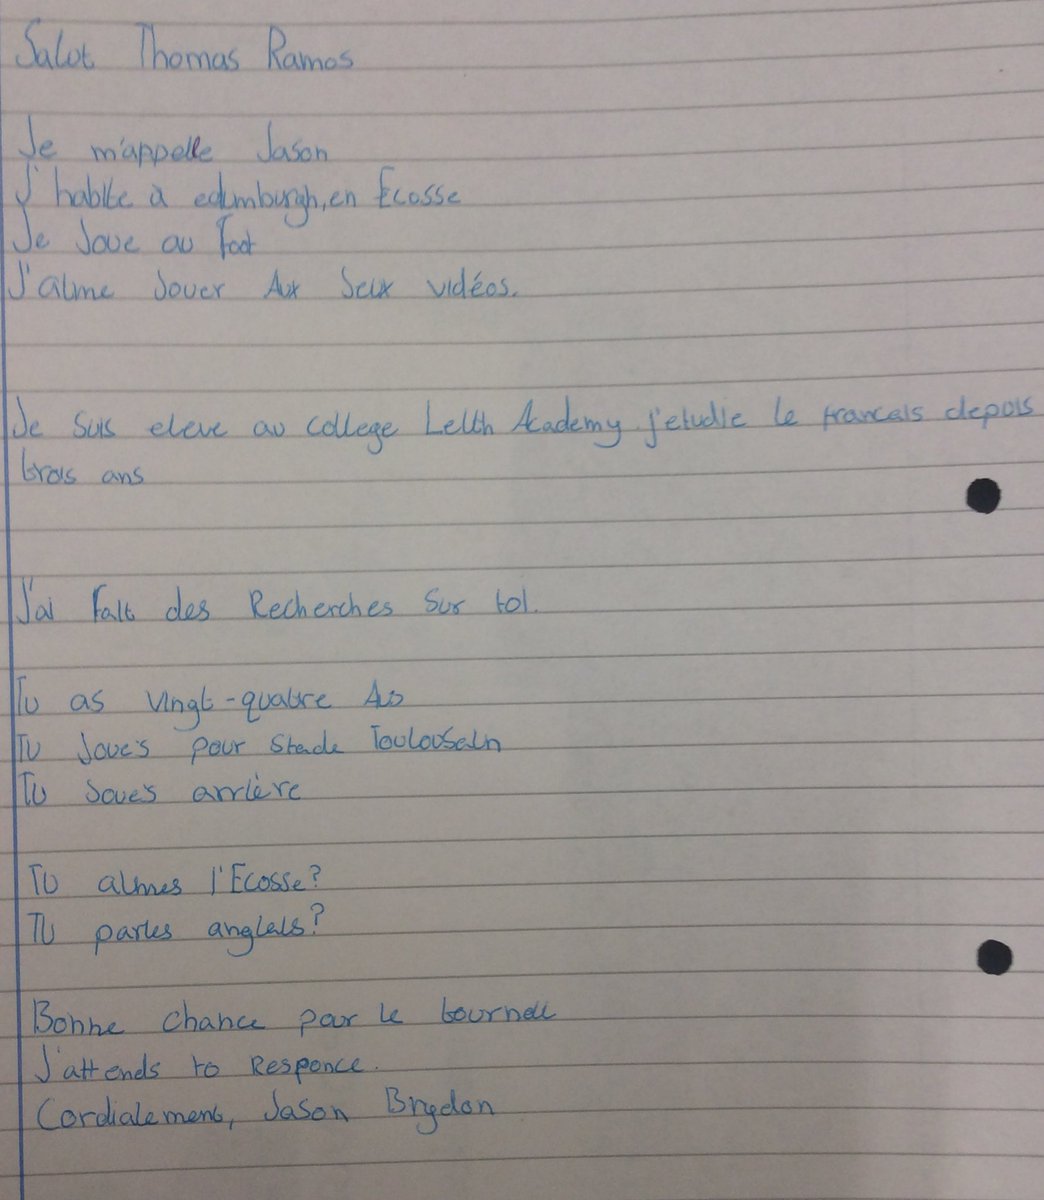 Salut Thomas Ramos
Je m'appelle Jason
J'habite à edimburgh, en Ecosse
Je Joue au Foot
J'aime Jouer Aux Jeux vidéos.
Je Suis eleve au college Leith Academy j'etudie le francais depuis
trois ans
J'ai Fait des Recherches Sur toi.
Tu as vingt-quatre Ans
Tu Joues pour Stade Toulousain
Tu Joues arrière
Tu aimes l'Ecosse?
Tu parles anglais?
Bonne chance pour le tournoi
J'attends ta Responce.
Cordialement, Jason Brydon